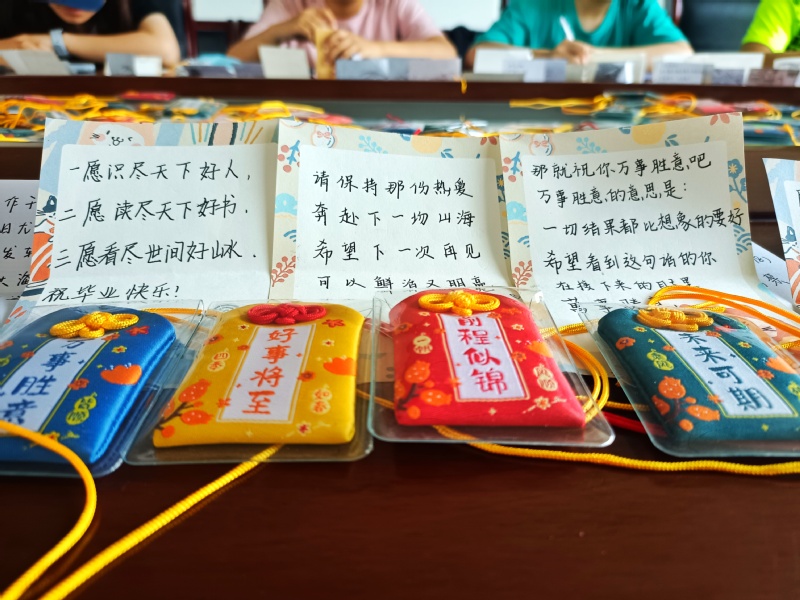 一愿识尽天下好人，
二愿读尽天下好书．
三愿看尽世间好山水．
祝毕业快乐！
请保持那份热爱
奔赴下一场山海
希望下一次再见
可以鲜活又明亮
那就祝你万事胜意吧
万事胜意的意思是：
一切结果都比想象的要好
希望看到这句话的你
在接下来的日子里
万事胜意
好事将至
前程似锦
未来可期